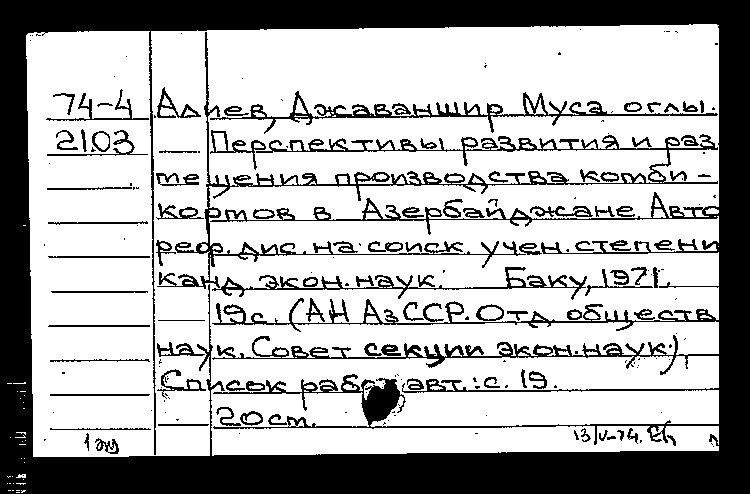 74-4 Алиев, Джаваншир Муса оглы.
2103 Перспективы развития и раз
мещения производства комби-
кормов в Азербайджане. Авто
реф. дис. на соиск. учен. степени
канд. экон. наук. Баку, 1971.
19с. (АН АзССР. Отд. обществ
наук. Совет секции экон. наук).
Список работ авт.: с. 19.
20см.
1 экз 13/V-74.